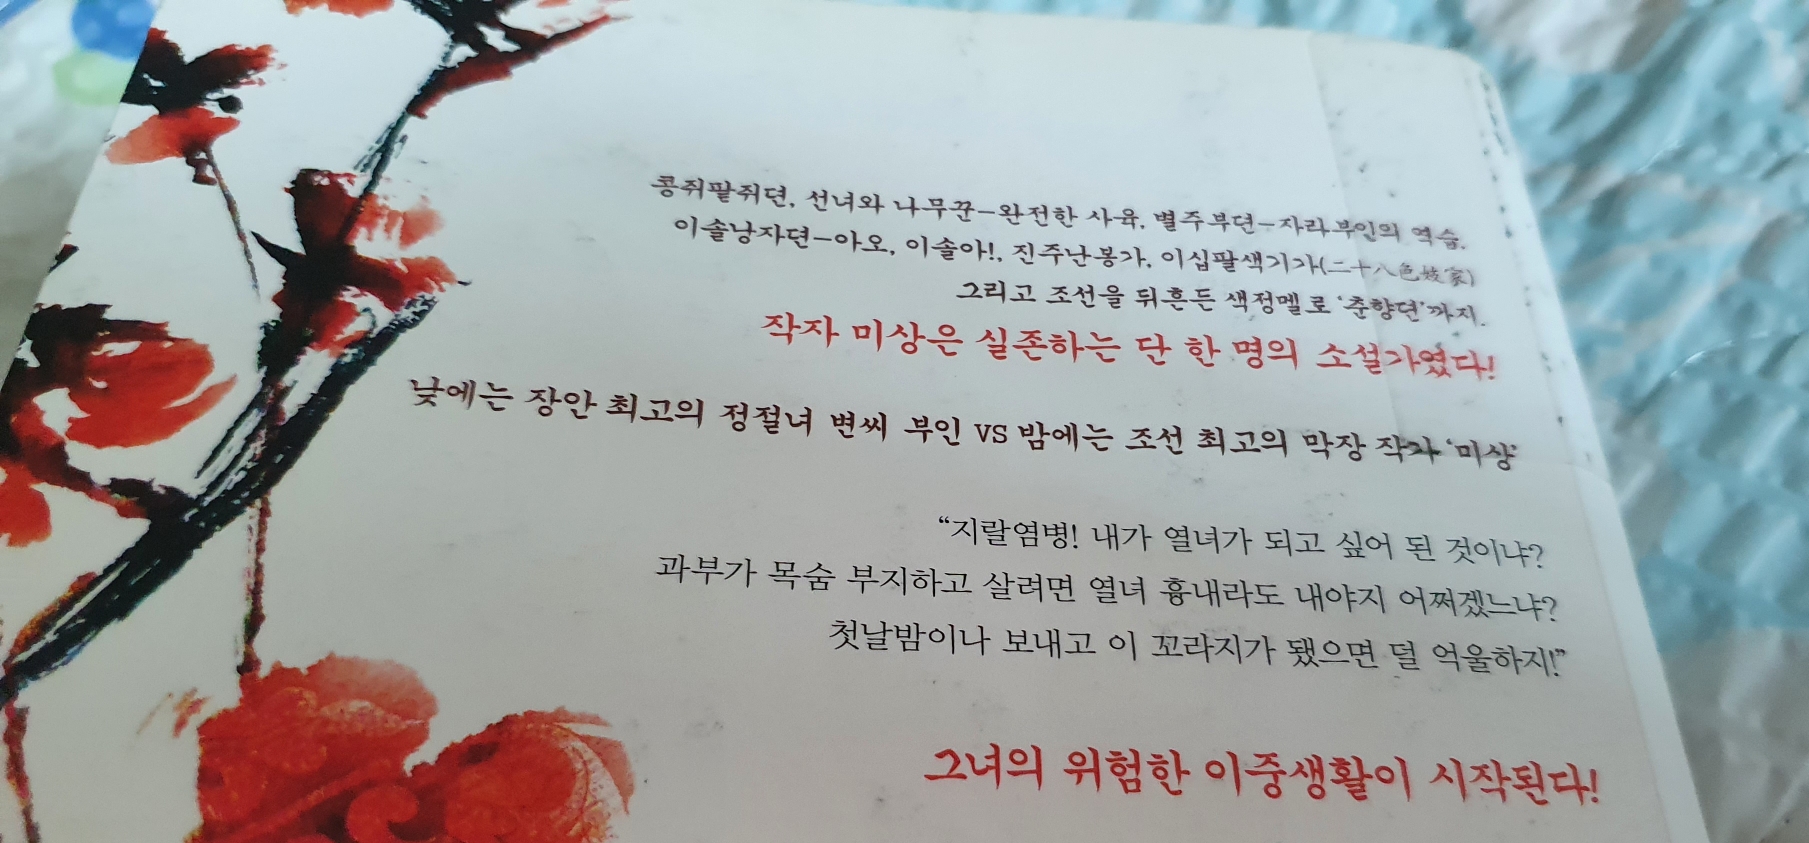 콩쥐팥쥐뎐, 선녀와 나무꾼-완전한 사육, 별주부뎐-자라부인의 역습,
이솔낭자뎐-아오, 이솔아!, 진주난봉가, 이십팔색기가(二十八色妓家)
그리고 조선을 뒤흔든 색정멜로 ‘춘향뎐’까지.
작자 미상은 실존하는 단 한 명의 소설가였다!
낮에는 장안 최고의 정절녀 변씨 부인 VS 밤에는 조선 최고의 막장 작가 ‘미상’
“지랄염병! 내가 열녀가 되고 싶어 된 것이냐?
과부가 목숨 부지하고 살려면 열녀 흉내라도 내야지 어쩌겠느냐?
첫날밤이나 보내고 이 꼬라지가 됐으면 덜 억울하지!”
그녀의 위험한 이중생활이 시작된다!